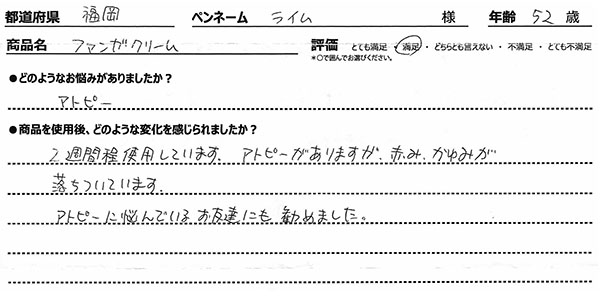 都道府県 福岡 ペンネーム ライム 様 年齢 52 歳
商品名 ファンガクリーム 評価 とても満足・満足・どちらとも言えない・不満足・とても不満足
*○で囲んでお選びください。
●どのようなお悩みがありましたか?
アトピー
●商品を使用後、どのような変化を感じられましたか?
2週間程使用しています。アトピーがありますが、赤み、かゆみが
落ちついています。
アトピーに悩んでいるお友達にも勧めました。